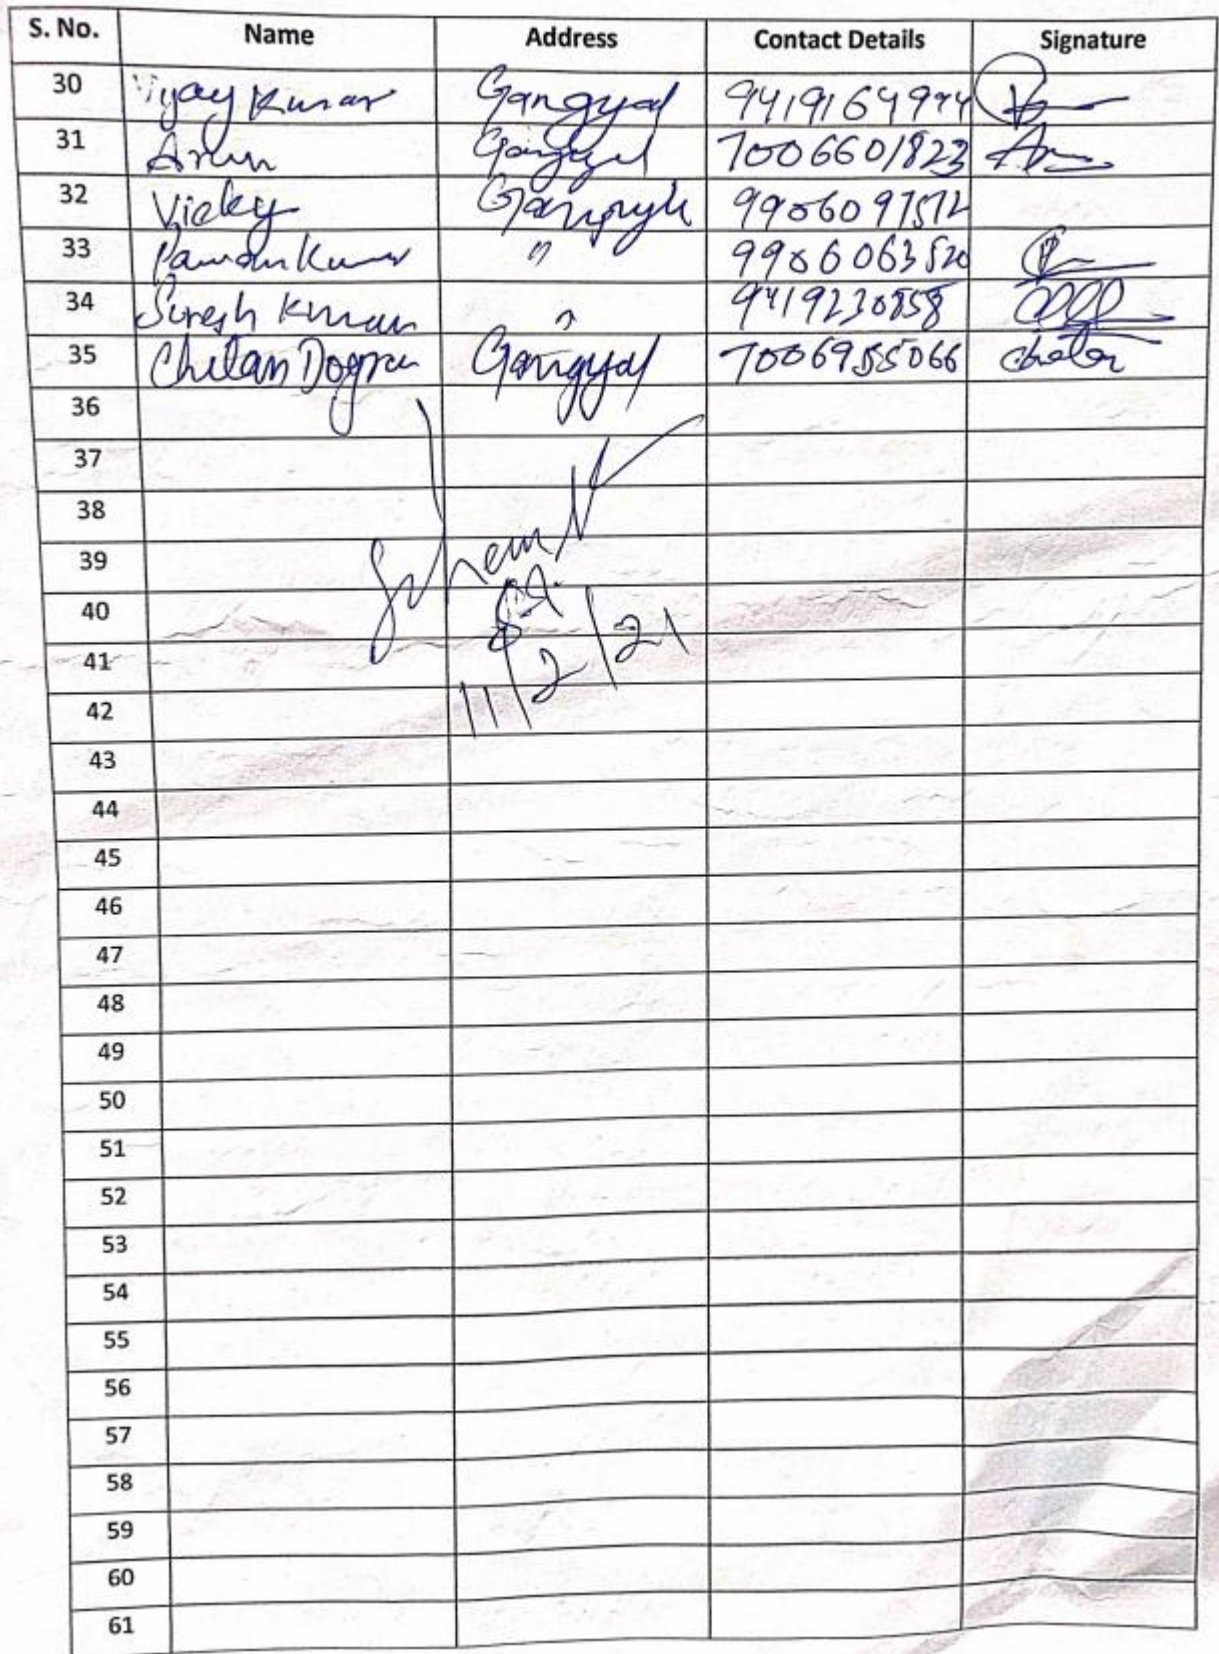 S. No. Name Address Contact Details Signature
30 Vijay Kumar Gangyal 9419164994
31 Arun Gangyal 7006601823
32 Vicky Gangyal 9906097572
33 Pawan Kumar " 9906063520
34 Suresh Kumar " 9419230858
35 Chetan Dogra Gangyal 7006955066 chetan
36
37
38
39
40
41
11/2/21
42
43
44
45
46
47
48
49
50
51
52
53
54
55
56
57
58
59
60
61